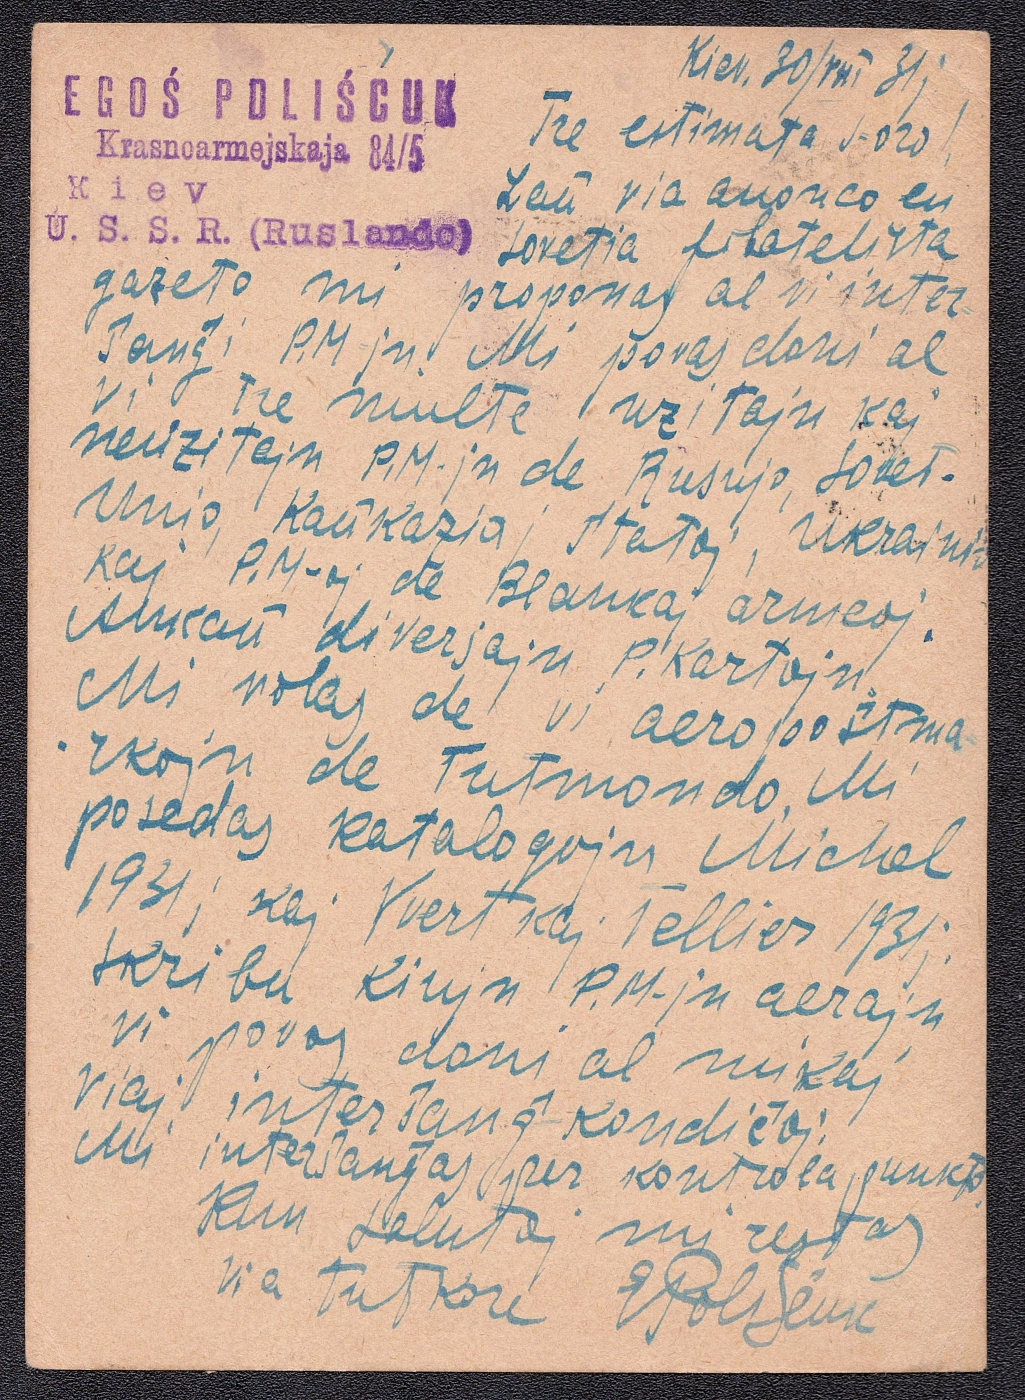 EGOŚ POLIŚĈUK
Krasnoarmejskaja 84/5
Kiev
U. S. S. R. (Ruslando)
Kiev. 30/VIII 31j
Tre estimata S-oro!
Laŭ via anonco en
Sovetia filatelista
gazeto mi proponas al vi inter-
ŝanĝi P.M-jn. Mi povas doni al
vi tre multe uzitajn kaj
neuzitajn P.M-jn de Rusujo, Sovet-
Unio, Kaŭkaziaj Ŝtatoj, Ukrainio
kaj P.M-oj de Blankaj armeoj.
Ankaŭ diversajn P.Kartojn.
Mi volas de vi aeropoŝtma-
rkojn de Tutmondo. Mi
posedas katalogojn Michel
1931j kaj Yvert kaj Tellier 1931j.
Skribu kiujn P.M-jn aerajn
vi povas doni al mi kaj
viaj interŝanĝ-kondiĉoj.
Mi interŝanĝas per kontrola punkto.
Kun salutoj mi restas
via tutkore EPoliŜĉuk